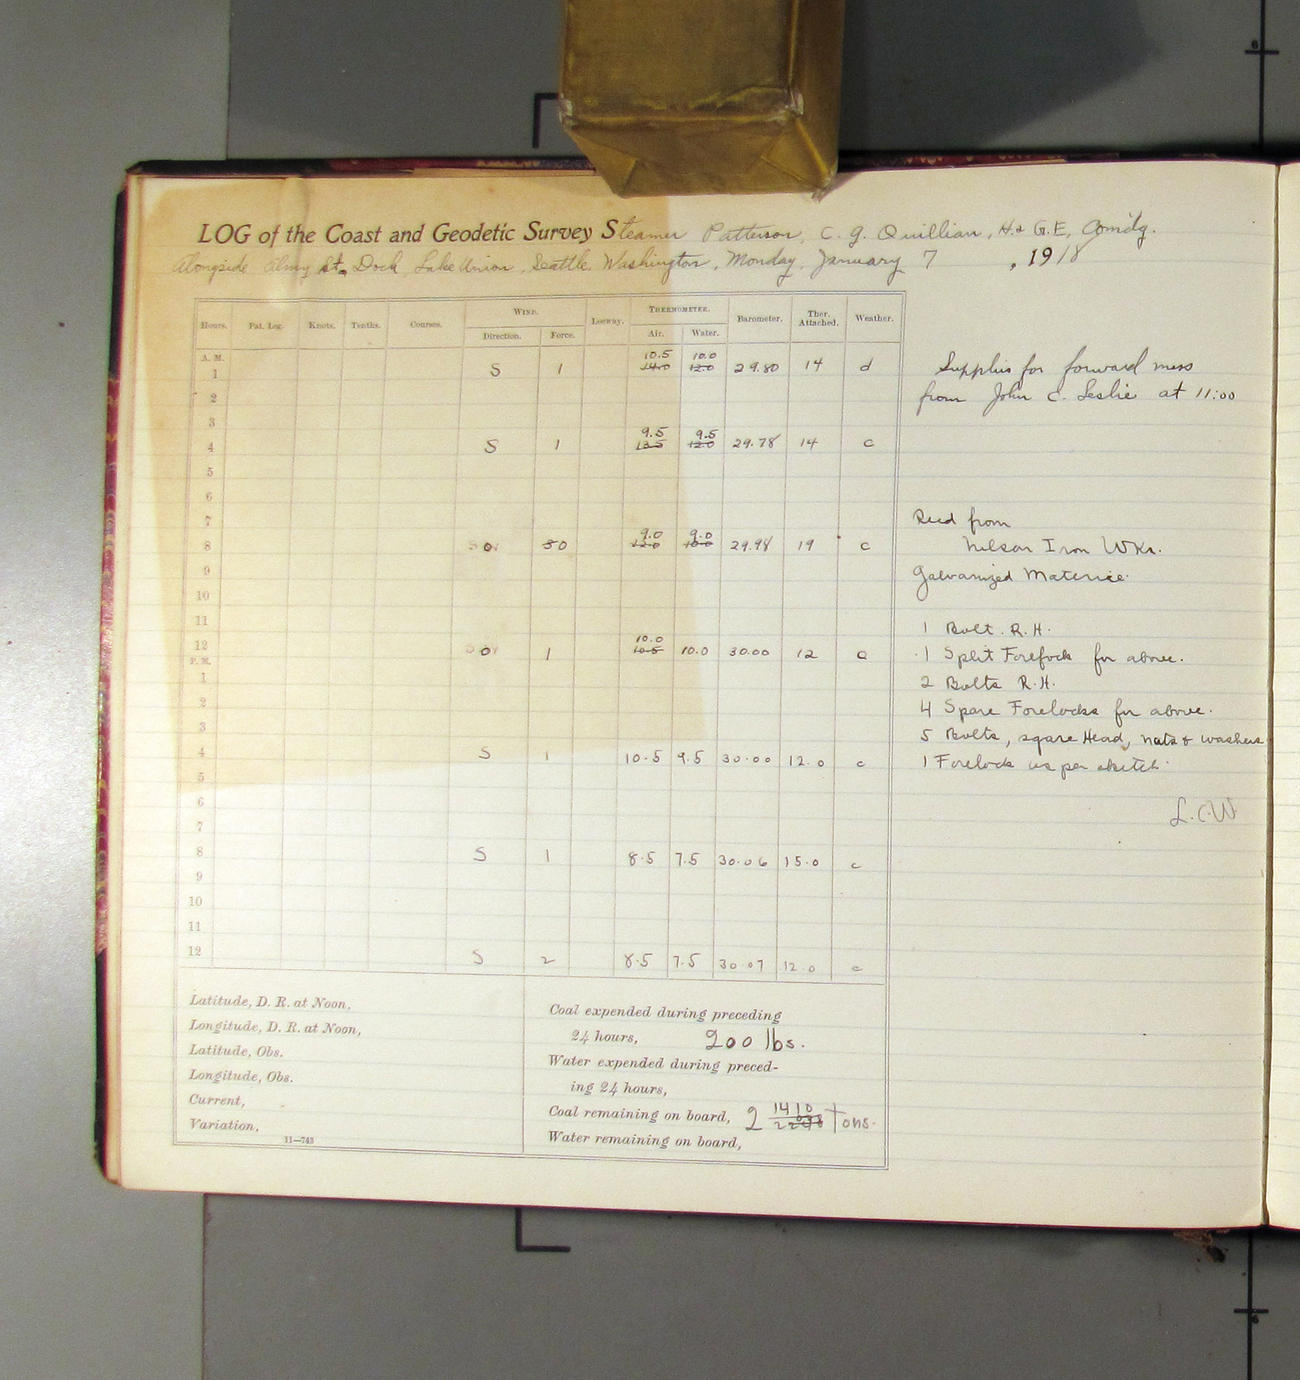 LOG of the Coast and Geodetic Survey Steamer Patterson, C. G. Quillian, H. & G. E., Comdg.
Alongside St. Dock Lake Union, Seattle, Washington, Monday, January 7, 1918
Hours. Pat. Log. Knots. Tenths. Courses. WIND. Direction. Force. Leeway. THERMOMETER. Air. Water. Barometer. Ther. Attached. Weather.
A. M.
1 S 1 10.5 14.0 10.0 12.0 29.80 14 d
2
3
4 S 1 9.5 13.5 9.5 12.0 29.78 14 c
5
6
7
8 0 0 9.0 12.0 9.0 10.0 29.98 19 c
9
10
11
12 0 1 10.0 10.5 10.0 30.00 12 c
P. M.
1
2
3
4 S 1 10.5 9.5 30.00 12.0 c
5
6
7
8 S 1 8.5 7.5 30.06 15.0 c
9
10
11
12 S 2 8.5 7.5 30.07 12.0 c
Supplies for forward mess
from John C. Leslie at 11:00
Recd from
Nelson Iron Wks.
Galvanized Material
1 Bolt. R.H.
1 Split Forelock for above.
2 Bolts R.H.
4 Spare Forelocks for above.
5 Bolts, sqare Head, nuts & washers
1 Forelock as per sketch.
L.C.W
Latitude, D. R. at Noon,
Longitude, D. R. at Noon,
Latitude, Obs.
Longitude, Obs.
Current,
Variation,
11—743
Coal expended during preceding
24 hours, 200 lbs.
Water expended during preced-
ing 24 hours,
Coal remaining on board, 2 1410 tons.
Water remaining on board,